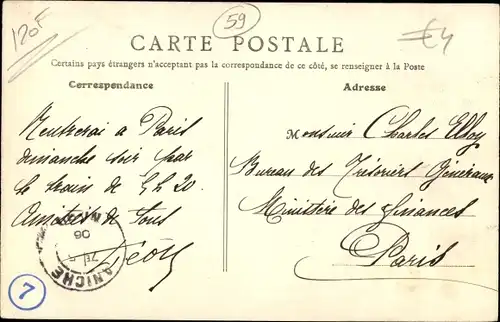 120F
59
€4
CARTE POSTALE
Certains pays étrangers n'acceptant pas la correspondance de ce côté, se renseigner à la Poste
Correspondance
Adresse
Rentrerai à Paris
dimanche soir par
le train de 9h20.
Amitiés de tous
Léon
Monsieur Charles
Bureau des Trésoriers Généraux
Ministère des Finances
Paris
ANICHE
06
7